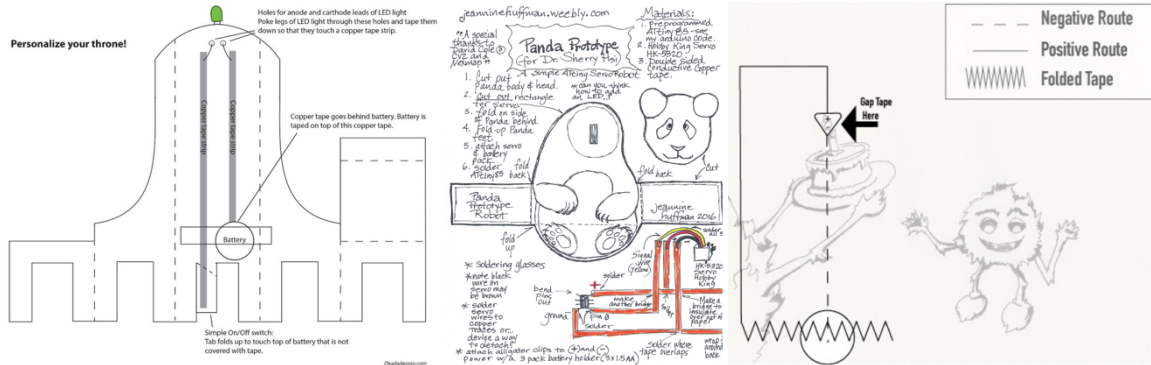 Personalize your throne!
Holes for anode and carthode leads of LED light
Poke legs of LED light through these holes and tape them
down so that they touch a copper tape strip.
Copper tape strip
Copper tape strip
Copper tape goes behind battery. Battery is
taped on top of this copper tape.
Battery
Simple On/Off switch:
Tab folds up to touch top of battery that is not
covered with tape.
jeanninehuffman.weebly.com
**A special
thanks to
David Cole @
CV2 and
Nexmap**
Panda Prototype
(for Dr. Sherry Hsi)
A simple ATtiny Servo Robot
Materials:
1. Preprogrammed
ATtiny 85 - see
my arduino code.
2. Hobby King Servo
HK-5320
3. Double sided
conductive copper
tape.
1. Cut out
Panda body & head.
2. Cut out rectangle
for servo
3. Fold on side
of Panda behind
4. Fold-up Panda
feet
5. attach servo
& battery
pack
6. solder
ATtiny85
*can you think
how to add
an LED..?
fold
back
fold
back
cut
Panda
Prototype
Robot
jeannine
huffman 2016
fold
up
* Soldering glasses
*note black
wire on
servo may
be brown
* solder
servo
wires to
copper
traces or..
devise a way
to detach!
* attach alligator clips to (+) and (-)
power w/a 3 pack battery holder (3x1.5AA)
Signal
wire
(Yellow)
HK-5320
Servo
Hobby
King
+
solder
bend
pins
out
make
another bridge
ground
Pin 0
solder
Make a
bridge to
insulate
over out of
paper
Solder where
tape overlaps
wrap
around
back
Negative Route
Positive Route
Folded Tape
Gap Tape
Here
+